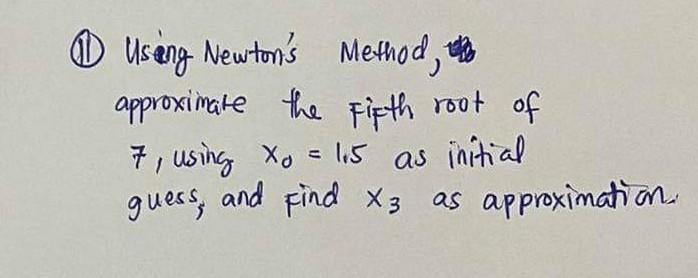 ⑪ Using Newton's Method,
approximate the Fifth root of
7, using x₀ = 1.5 as initial
guess, and Find x₃ as approximation.